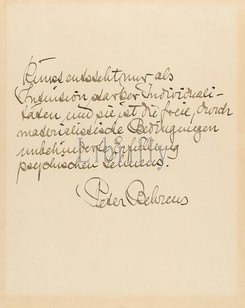 Kunst entsteht nur als
Intuition starker Individuali-
täten und sie ist die freie, durch
materialistische Bedingungen
unbehinderte Erfüllung
psychischen Dranges.
Peter Behrens